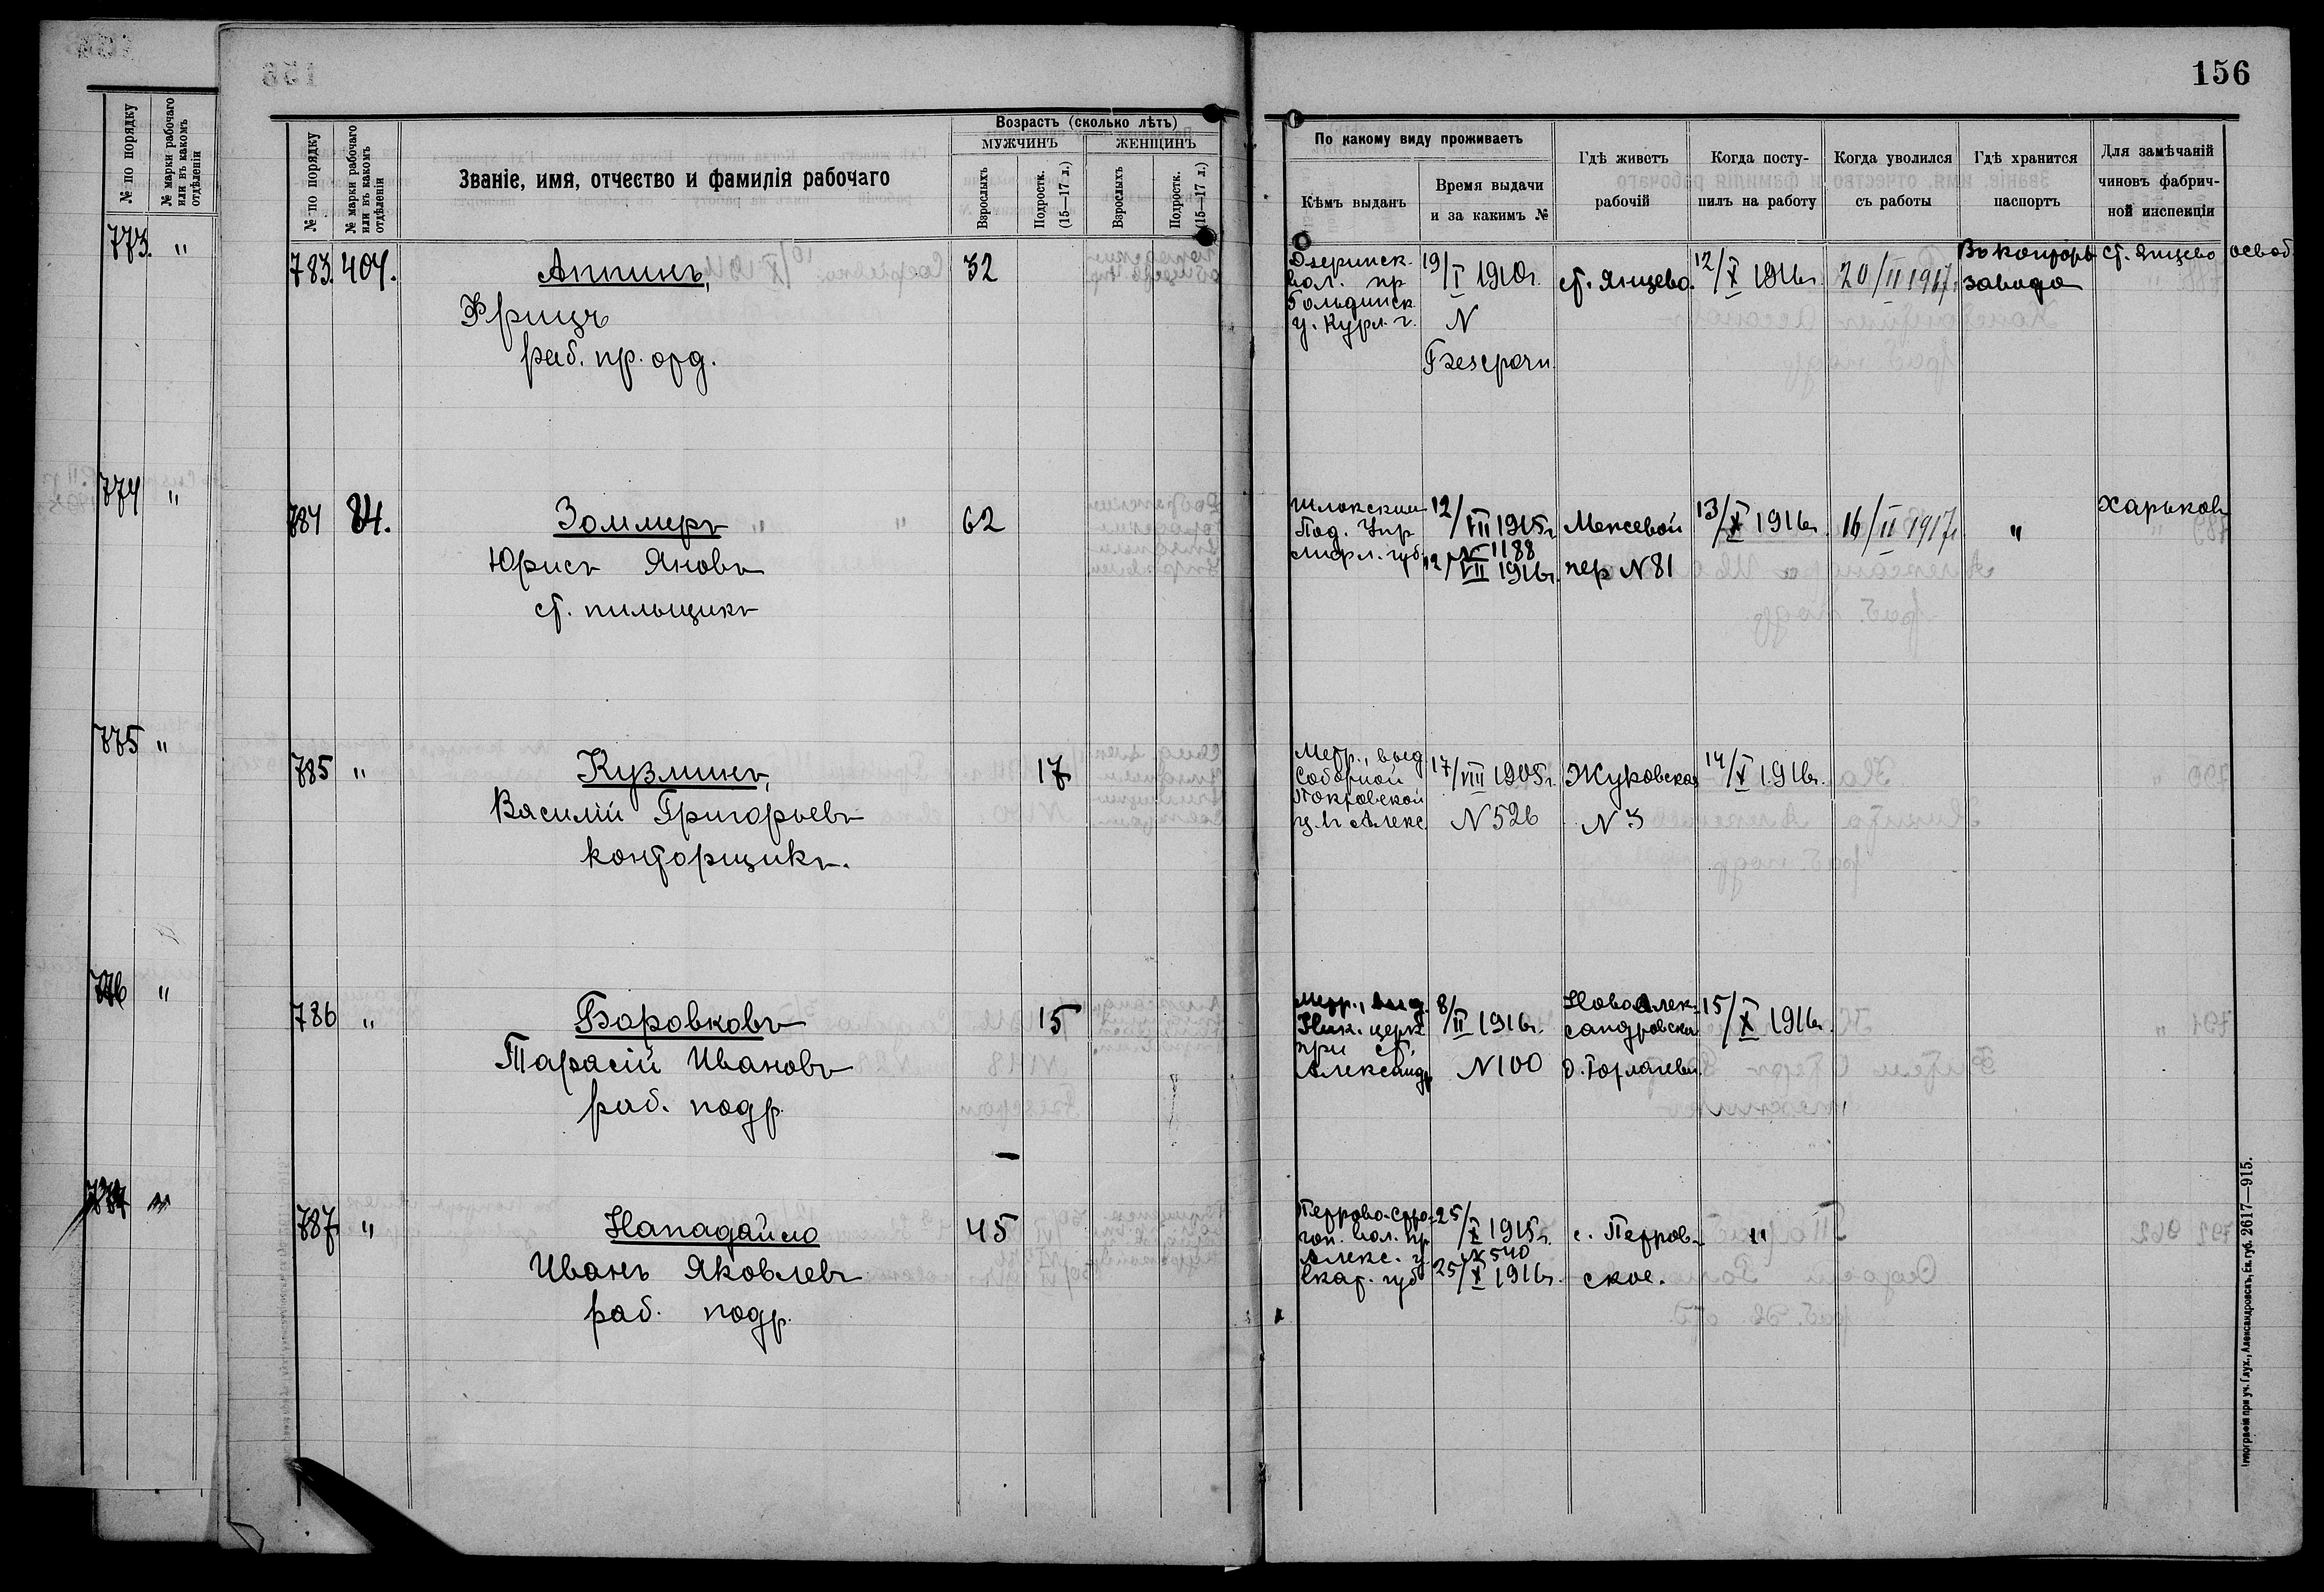 156
№ по порядку
№ марки рабочаго или въ какомъ отдѣленіи
773. "
774 "
775 "
776 "
№ по порядку
№ марки рабочаго или въ какомъ отдѣленіи
Званіе, имя, отчество и фамилія рабочаго
Возрастъ (сколько лѣтъ)
МУЖЧИНЪ
ЖЕНЩИНЪ
Взрослыхъ
Подростк. (15—17 л.)
Взрослыхъ
Подростк. (15—17 л.)
По какому виду проживаетъ
Кѣмъ выданъ
Время выдачи и за какимъ №
Гдѣ живетъ рабочій
Когда поступилъ на работу
Когда уволился съ работы
Гдѣ хранится паспортъ
Для замѣчаній чиновъ фабричной инспекціи
783. 404. Аппинъ, 32
Фрицъ
раб. пр. орд.
вол. пр
Гольдинск.
у. Курл. г.
19/I 1910г.
N
Безсрочн.
ст. Янцево.
12/X 1916г.
20/II 1917г.
Въ конторѣ
завода
ст. Янцево освоб.
784 84. Зоммеръ 62
Юрисъ Яновъ
ст. пильщикъ
Шлокским
Под. Упр
Лифл. губ.
12/VII 1915г.
N 1188
12/VII 1916г.
Межевой
пер N 81
13/X 1916г.
16/II 1917г.
"
Харьковъ
785 " Кузминъ, 17
Василій Григорьевъ
конторщикъ.
Метр., выд
Соборной
Покровской
ц. г. Алекс.
17/VIII 1905г.
N 526
Жуковская
N 3
14/X 1916г.
786 " Боровковъ 15
Тарасій Ивановъ
раб. подр.
Метр., выд.
Ник. церк
при ст.
Александр
8/II 1916г.
N 100
Ново Алек-
сандровска
15/X 1916г.
787 " Нападайло 45
Иванъ Яковлевъ
раб. подр.
вол. пр
Алекс. у.
Екат. губ
25/X 1915г.
N 540
25/X 1916г.
с. Петров-
ское.
"
Типографія при уч. Глух., Александровскъ, Ек. губ. 2617—915.